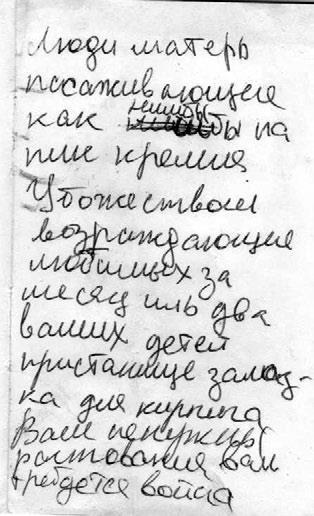 Люди матерь
посаживающие
как нимбы на
пик кремля
Убожеством
возрождающие
любимых за
месяц иль два
ваших детей
пристанище замаз-
ка для кирпича
Вам ненужны
рантования вам
грейдется война